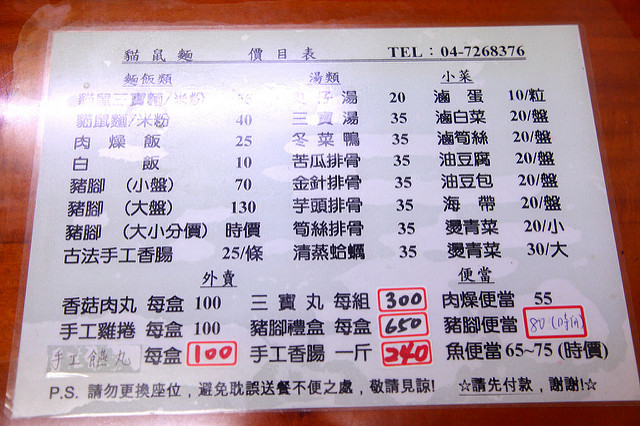 貓鼠麵 價目表 TEL：04-7268376
麵飯類 湯類 小菜
貓鼠三寶麵/米粉 55 丸子湯 20 滷蛋 10/粒
貓鼠麵/米粉 40 三寶湯 35 滷白菜 20/盤
肉燥飯 25 冬菜鴨 35 滷筍絲 20/盤
白飯 10 苦瓜排骨 35 油豆腐 20/盤
豬腳（小盤） 70 金針排骨 35 油豆包 20/盤
豬腳（大盤） 130 芋頭排骨 35 海帶 20/盤
豬腳（大小分價） 時價 筍絲排骨 35 燙青菜 20/小
古法手工香腸 25/條 清蒸蛤蠣 35 燙青菜 30/大
外賣 便當
香菇肉丸 每盒 100 三寶丸 每組 300 肉燥便當 55
手工雞捲 每盒 100 豬腳禮盒 每盒 650 豬腳便當 80
手工 丸 每盒 100 手工香腸 一斤 240 魚便當 65~75 (時價)
P.S. 請勿更換座位，避免耽誤送餐不便之處，敬請見諒! ☆請先付款，謝謝!☆